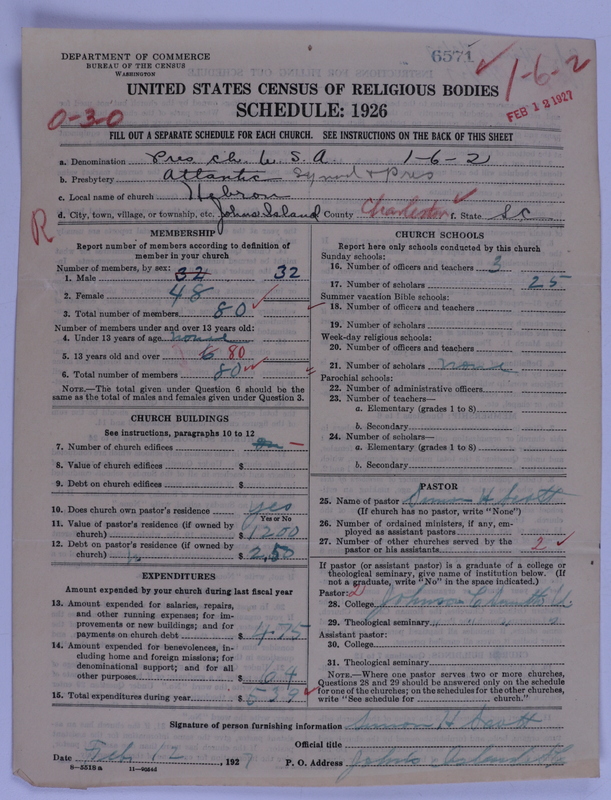 DEPARTMENT OF COMMERCE
BUREAU OF THE CENSUS
WASHINGTON
6571
1-6-2
FEB 12 1927
UNITED STATES CENSUS OF RELIGIOUS BODIES
SCHEDULE: 1926
0-30
FILL OUT A SEPARATE SCHEDULE FOR EACH CHURCH. SEE INSTRUCTIONS ON THE BACK OF THIS SHEET
a. Denomination Pres Ch U.S.A. 1-6-2
b. Presbytery Atlantic Synod & Pres
c. Local name of church Hebron
d. City, town, village, or township, etc. Johns Island County Charleston f. State SC
R
MEMBERSHIP
Report number of members according to definition of
member in your church
Number of members, by sex:
1. Male 32 32
2. Female 48
3. Total number of members 80
Number of members under and over 13 years old:
4. Under 13 years of age
5. 13 years old and over 80
6. Total number of members 80
NOTE.—The total given under Question 6 should be
the same as the total of males and females given under Question 3.
CHURCH BUILDINGS
See instructions, paragraphs 10 to 12
7. Number of church edifices
8. Value of church edifices $
9. Debt on church edifices $
10. Does church own pastor's residence? yes
Yes or No
11. Value of pastor's residence (if owned by
church) $ 1200
12. Debt on pastor's residence (if owned by
church) $ 250
EXPENDITURES
Amount expended by your church during last fiscal year
13. Amount expended for salaries, repairs,
and other running expenses; for im-
provements or new buildings; and for
payments on church debt $ 475
14. Amount expended for benevolences, in-
cluding home and foreign missions; for
denominational support; and for all
other purposes $ 64
15. Total expenditures during year $ 539
CHURCH SCHOOLS
Report here only schools conducted by this church
Sunday schools:
16. Number of officers and teachers 3
17. Number of scholars 25
Summer vacation Bible schools:
18. Number of officers and teachers
19. Number of scholars
Week-day religious schools:
20. Number of officers and teachers
21. Number of scholars none
Parochial schools:
22. Number of administrative officers
23. Number of teachers—
a. Elementary (grades 1 to 8)
b. Secondary
24. Number of scholars—
a. Elementary (grades 1 to 8)
b. Secondary
PASTOR
25. Name of pastor Simon H Scott
(If church has no pastor, write "None")
26. Number of ordained ministers, if any, em-
ployed as assistant pastors
27. Number of other churches served by the
pastor or his assistants 2
If pastor (or assistant pastor) is a graduate of a college or
theological seminary, give name of institution below. (If
not a graduate, write "No" in the space indicated.)
Pastor:
28. College Johnson C Smith U
29. Theological seminary
Assistant pastor:
30. College
31. Theological seminary
NOTE.—Where one pastor serves two or more churches,
Questions 28 and 29 should be answered only on the schedule
for one of the churches; on the schedules for the other churches,
write "See schedule for church."
Signature of person furnishing information Simon H Scott
Official title
Date Feb 12, 1927
P. O. Address Johns Island SC
8-5518 a 11-9064d